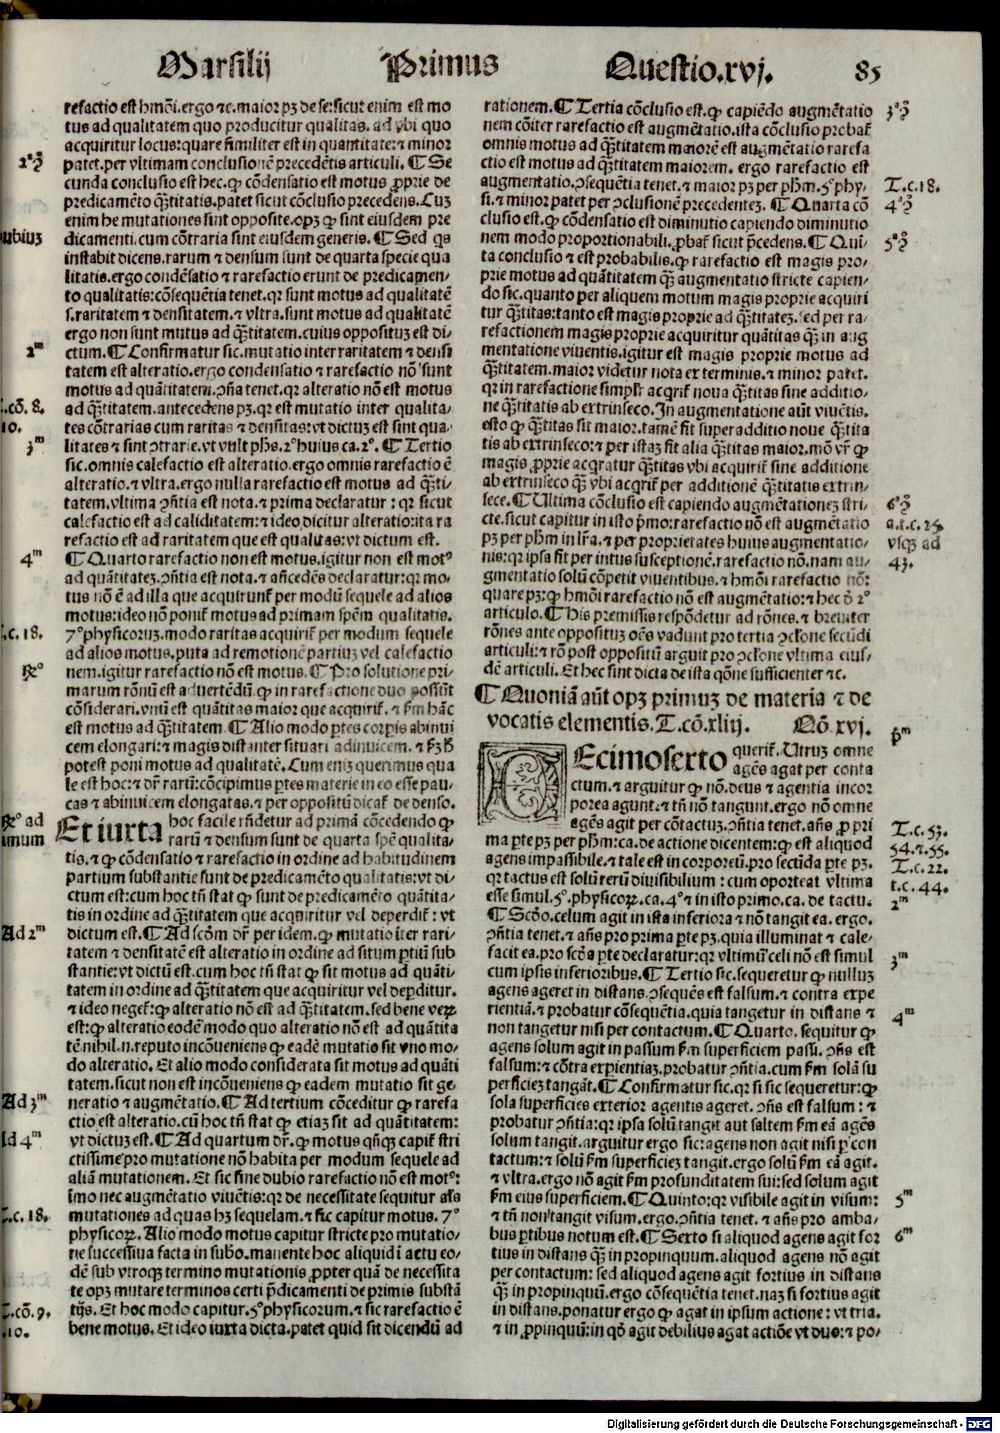 Marsilij Primus Questio.xvj. 85
refactio est hmõi.ergo ⁊c.maior pȝ de se:sicut enim est mo
tus ad qualitatem quo producitur qualitas. ad vbi quo
acquiritur locus:quare similiter est in quantitate:⁊ minor
patet.per vltimam conclusionẽ precedẽtis articuli. ¶ Se
cunda conclusio est hec.ꝙ cõdensatio est motus ꝓprie de
predicamẽto q̃titatis.patet sicut cõclusio precedens. Cuȝ
enim he mutationes sint opposite.opȝ ꝙ sint eiusdem pre
dicamenti.cum cõtraria sint eiusdem generis. ¶ Sed qs
instabit dicens.rarum ⁊ densum sunt de quarta specie qua
litatis.ergo condẽsatio ⁊ rarefactio erunt de predicamen/
to qualitatis:cõsequẽtia tenet.qr sunt motus ad qualitatẽ
s.raritatem ⁊ densitatem.⁊ vltra.sunt motus ad qualitatẽ
ergo non sunt mutus ad q̃titatem.cuius opposituȝ est di/
ctum.¶ Confirmatur sic.mutatio inter raritatem ⁊ densi
tatem est alteratio.ergo condensatio ⁊ rarefactio nõ sunt
motus ad quãtitatem.ꝯ̃ña tenet.qr alteratio nõ est motus
ad q̃titatem.antecedens pȝ.qr est mutatio inter qualita/
tes cõtrarias cum raritas ⁊ densitas:vt dictuȝ est sint qua/
litates ⁊ sint ꝯtrarie.vt vult phs.2º huius ca.2º. ¶ Tertio
sic.omnis calefactio est alteratio.ergo omnis rarefactio ẽ
alteratio.⁊ vltra.ergo nulla rarefactio est motus ad q̃ti/
tatem.vltima ꝯ̃ñtia est nota.⁊ prima declaratur : qr sicut
calefactio est ad caliditatem:⁊ ideo dicitur alteratio:ita ra
refactio est ad raritatem que est qualitas:vt dictum est.
¶ Quarto rarefactio non est motus.igitur non est motº
ad quãtitateȝ.ꝯ̃ñtia est nota.⁊ añcedẽs declaratur:qr mo/
tus nõ ẽ ad illa que acquirunt per modũ sequele ad alios
motus:ideo nõ ponit motus ad primam spẽm qualitatis.
7º physicorum.modo raritas acquirit per modum sequele
ad alios motus.puta ad remotionẽ partiuȝ vel calefactio
nem.igitur rarefactio nõ est motus. ¶ Pro solutione pri/
marum rõnũ est aduertẽdũ.ꝙ in rarefactione duo possũt
cõsiderari.vnũ est quãtitas maior que acquirit.⁊ ẜm hãc
est motus ad q̃titatem.¶ Alio modo ptes corpis abinui
cem elongari:⁊ magis distanter situari adinuicem.⁊ ẜȝ B
potest poni motus ad qualitatẽ. Cum eniȝ querimus qua
le est hoc:⁊ dr rarũ:cõcipimus ptes materie in eo esse pau/
cas ⁊ abinuicem elongatas.⁊ per oppositũ dicat de denso.
Et iuxta hoc facile rñdetur ad primã cõcedendo ꝙ
rarũ ⁊ densum sunt de quarta spẽ qualita/
tis.⁊ ꝙ cõdensatio ⁊ rarefactio in ordine ad habitudinem
partium substantie sunt de predicamẽto qualitatis:vt di/
ctum est:cum hoc tñ stat ꝙ sunt de predicamẽto quãtita/
tis in ordine ad q̃titatem que acquiritur vel deperdit : vt
dictum est.¶ Ad scõm dr per idem.ꝙ mutatio iter rari/
tatem ⁊ densitatẽ est alteratio in ordine ad situm ptiũ sub
stantie:vt dictũ est.cum hoc tñ stat ꝙ sit motus ad quãti/
tatem in ordine ad q̃titatem que acquiritur vel depditur.
⁊ ideo neget:ꝙ alteratio nõ est ad q̃titatem.sed bene veꝝ
est:ꝙ alteratio eodẽ modo quo alteratio nõ est ad quãtita
tẽ.nihil.n.reputo incõueniens ꝙ eadẽ mutatio sit vno mo/
do alteratio. Et alio modo considerata sit motus ad quãti
tatem.sicut non est incõueniens ꝙ eadem mutatio sit ge/
neratio ⁊ augmẽtatio.¶ Ad tertium cõceditur ꝙ rarefa
ctio est alteratio.cũ hoc tñ stat ꝙ etiaȝ sit ad quãtitatem:
vt dictuȝ est.¶ Ad quartum dr.ꝙ motus qñqȝ capit stri
ctissime:pro mutatione nõ habita per modum sequele ad
aliã mutationem. Et sic sine dubio rarefactio nõ est motº:
imo nec augmẽtatio viuẽtis:qr de necessitate sequitur alias
mutationes ad quas hȝ sequelam.⁊ sic capitur motus. 7º
physicoꝝ. Alio modo motus capitur stricte pro mutatio/
ne successiua facta in subo.manente hoc aliquid i actu eo/
dẽ sub vtroqȝ termino mutationis ꝓpter quã de necessita
te opȝ mutare terminos certi p̃dicamenti de primis substã
tijs. Et hoc modo capitur.5º physicorum.⁊ sic rarefactio ẽ
bene motus. Et ideo iuxta dicta.patet quid sit dicendũ ad
2ª ꝯ̃
ubiuȝ
2ᵐ
.cõ. 8.
10.
3ᵐ
4ᵐ
.c. 18.
ad
imum
Ad 2ᵐ
Ad 3ᵐ
Ad 4ᵐ
.c. 18.
.cõ. 9.
.10.
rationem.¶ Tertia cõclusio est.ꝙ capiẽdo augmẽtatio
nem cõiter rarefactio est augmẽtatio.ista cõclusio probat
omnis motus ad q̃titatem maiorẽ est augmẽtatio rarefa
ctio est motus ad q̃titatem maiorem. ergo rarefactio est
augmentatio.ꝯsequẽtia tenet.⁊ maior pȝ per phm.5º phy/
si.⁊ minor patet per ꝯclusionẽ precedenteȝ. ¶ Quarta cõ
clusio est.ꝙ condensatio est diminutio capiendo diminutio
nem modo proportionabili.ꝓbat sicut p̃cedens.¶ Qui/
ta conclusio ⁊ est probabilis.ꝙ rarefactio est magis pro/
prie motus ad quãtitatem q̃ augmentatio stricte capien/
do sic.quanto per aliquem motum magis proprie acquiri
tur q̃titas:tanto est magis proprie ad q̃titateȝ.sed per ra/
refactionem magis proprie acquiritur quãtitas q̃ in aug
mentatione viuentis.igitur est magis proprie motus ad
q̃titatem.maior videtur nota ex terminis.⁊ minor patet.
qr in rarefactione simplr acqrit noua q̃titas sine additio/
ne q̃titatis ab extrinseco. In augmentatione aũt viuẽtis.
esto ꝙ q̃titas sit maior.tamẽ fit superadditio noue q̃tita
tis ab extrinseco:⁊ per istaȝ fit alia q̃titas maior.mõ vr ꝙ
magis ꝓprie acqratur q̃titas vbi acquirit sine additione
ab extrinseco q̃ vbi acqrit per additionẽ q̃titatis extrin/
sece.¶ Ultima cõclusio est capiendo augmẽtationeȝ stri/
cte.sicut capitur in isto p̃mo:rarefactio nõ est augmẽtatio
pȝ per phm in lra.⁊ per proprietates huius augmentatio/
nis:qr ipsa fit per intus susceptionẽ.rarefactio nõ.nam au/
gmentatio solũ cõpetit viuentibus.⁊ hmõi rarefactio nõ:
quare pȝ:ꝙ hmõi rarefactio nõ est augmẽtatio:⁊ hec ð 2º
articulo.¶ His premissis respõdetur ad rõnes.⁊ breuiter
rõnes ante oppositũ oẽs vadunt pro tertia ꝯclone secũdi
articuli:⁊ rõ post oppositũ arguit pro ꝯclone vltima eius/
dẽ articuli. Et hec sint dicta de ista qõne sufficienter ⁊c.
¶ Quoniã aũt opȝ primuȝ de materia ⁊ de
vocatis elementis. T.cõ.xliij. Qõ.xvj.
Decimosexto querit. Utruȝ omne
agẽs agat per conta
ctum.⁊ arguitur ꝙ nõ.deus ⁊ agentia incor
porea agunt.⁊ tñ nõ tangunt.ergo nõ omne
agẽs agit per cõtactuȝ.ꝯ̃ñtia tenet.añs ꝓ pri
ma pte pȝ per phm:ca.de actione dicentem:ꝙ est aliquod
agens impassibile.⁊ tale est in corporeũ.pro secũda pte pȝ.
qr tactus est solũ rerũ diuisibilium : cum oporteat vltima
esse simul.5º.physicoꝝ.ca.4º ⁊ in isto primo.ca. de tactu.
¶ Scõo.celum agit in ista inferiora ⁊ nõ tangit ea. ergo.
ꝯ̃ñtia tenet.⁊ añs pro prima pte pȝ.quia illuminat ⁊ cale/
facit ea.pro scõa pte declaratur:qr vltimũ celi nõ est simul
cum ipsis inferioribus.¶ Tertio sic.sequeretur ꝙ nulluȝ
agens ageret in distans.ꝯsequẽs est falsum.⁊ contra expe
rientiã.⁊ probatur cõsequẽtia.quia tangetur in distans ⁊
non tangetur nisi per contactum.¶ Quarto. sequitur ꝙ
agens solum agit in passum ẜm superficiem passi. ꝯ̃ñs est
falsum:⁊ cõtra exꝑientiaȝ.probatur ꝯ̃ñtia.cum ẜm solã su
perficieȝ tangãt.¶ Confirmatur sic.qr si sic sequeretur:ꝙ
sola superficies exterior agentis ageret. ꝯ̃ñs est falsum : ⁊
probatur ꝯ̃ñtia:qr ipsa solũ tangit aut saltem ẜm eã agẽs
solum tangit.arguitur ergo sic:agens non agit nisi ꝑ con
tactum:⁊ solũ ẜm superficieȝ tangit.ergo solũ ẜm eã agit.
⁊ vltra.ergo nõ agit ẜm profunditatem sui:sed solum agit
ẜm eius superficiem.¶ Quinto:qr visibile agit in visum:
⁊ tñ non tangit visum.ergo.ꝯ̃ñtia tenet.⁊ añs pro amba/
bus ptibus notum est.¶ Sexto si aliquod agens agit for
tius in distans q̃ in propinquum.aliquod agens nõ agit
per contactum: sed aliquod agens agit fortius in distans
q̃ in propinquũ.ergo cõsequẽtia tenet.naȝ si fortius agit
in distans.ponatur ergo ꝙ agat in ipsum actione : vt tria.
⁊ in ꝓpinquũ:in qõ agit debilius agat actiõe vt duo:⁊ po/
3ª ꝯ̃
T.c.18.
4ª ꝯ̃
5ª ꝯ̃
6ª ꝯ̃
a.t.c. 25
vsqȝ ad
43.
pᵐ
T.c. 53.
54.⁊.55.
T.c. 22.
t.c. 44.
2ᵐ
3ᵐ
4ᵐ
5ᵐ
6ᵐ
Digitalisierung gefördert durch die Deutsche Forschungsgemeinschaft - DFG